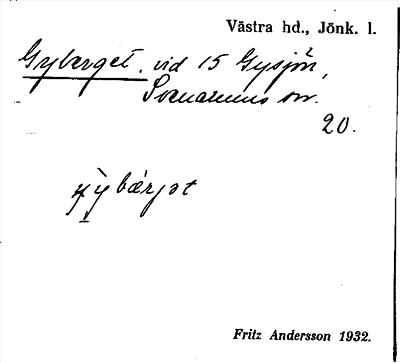 Västra hd., Jönk. l.
Gyberget. vid 15 Gysjön,
Svenarums sn.
20.
bárjət
Fritz Andersson 1932.